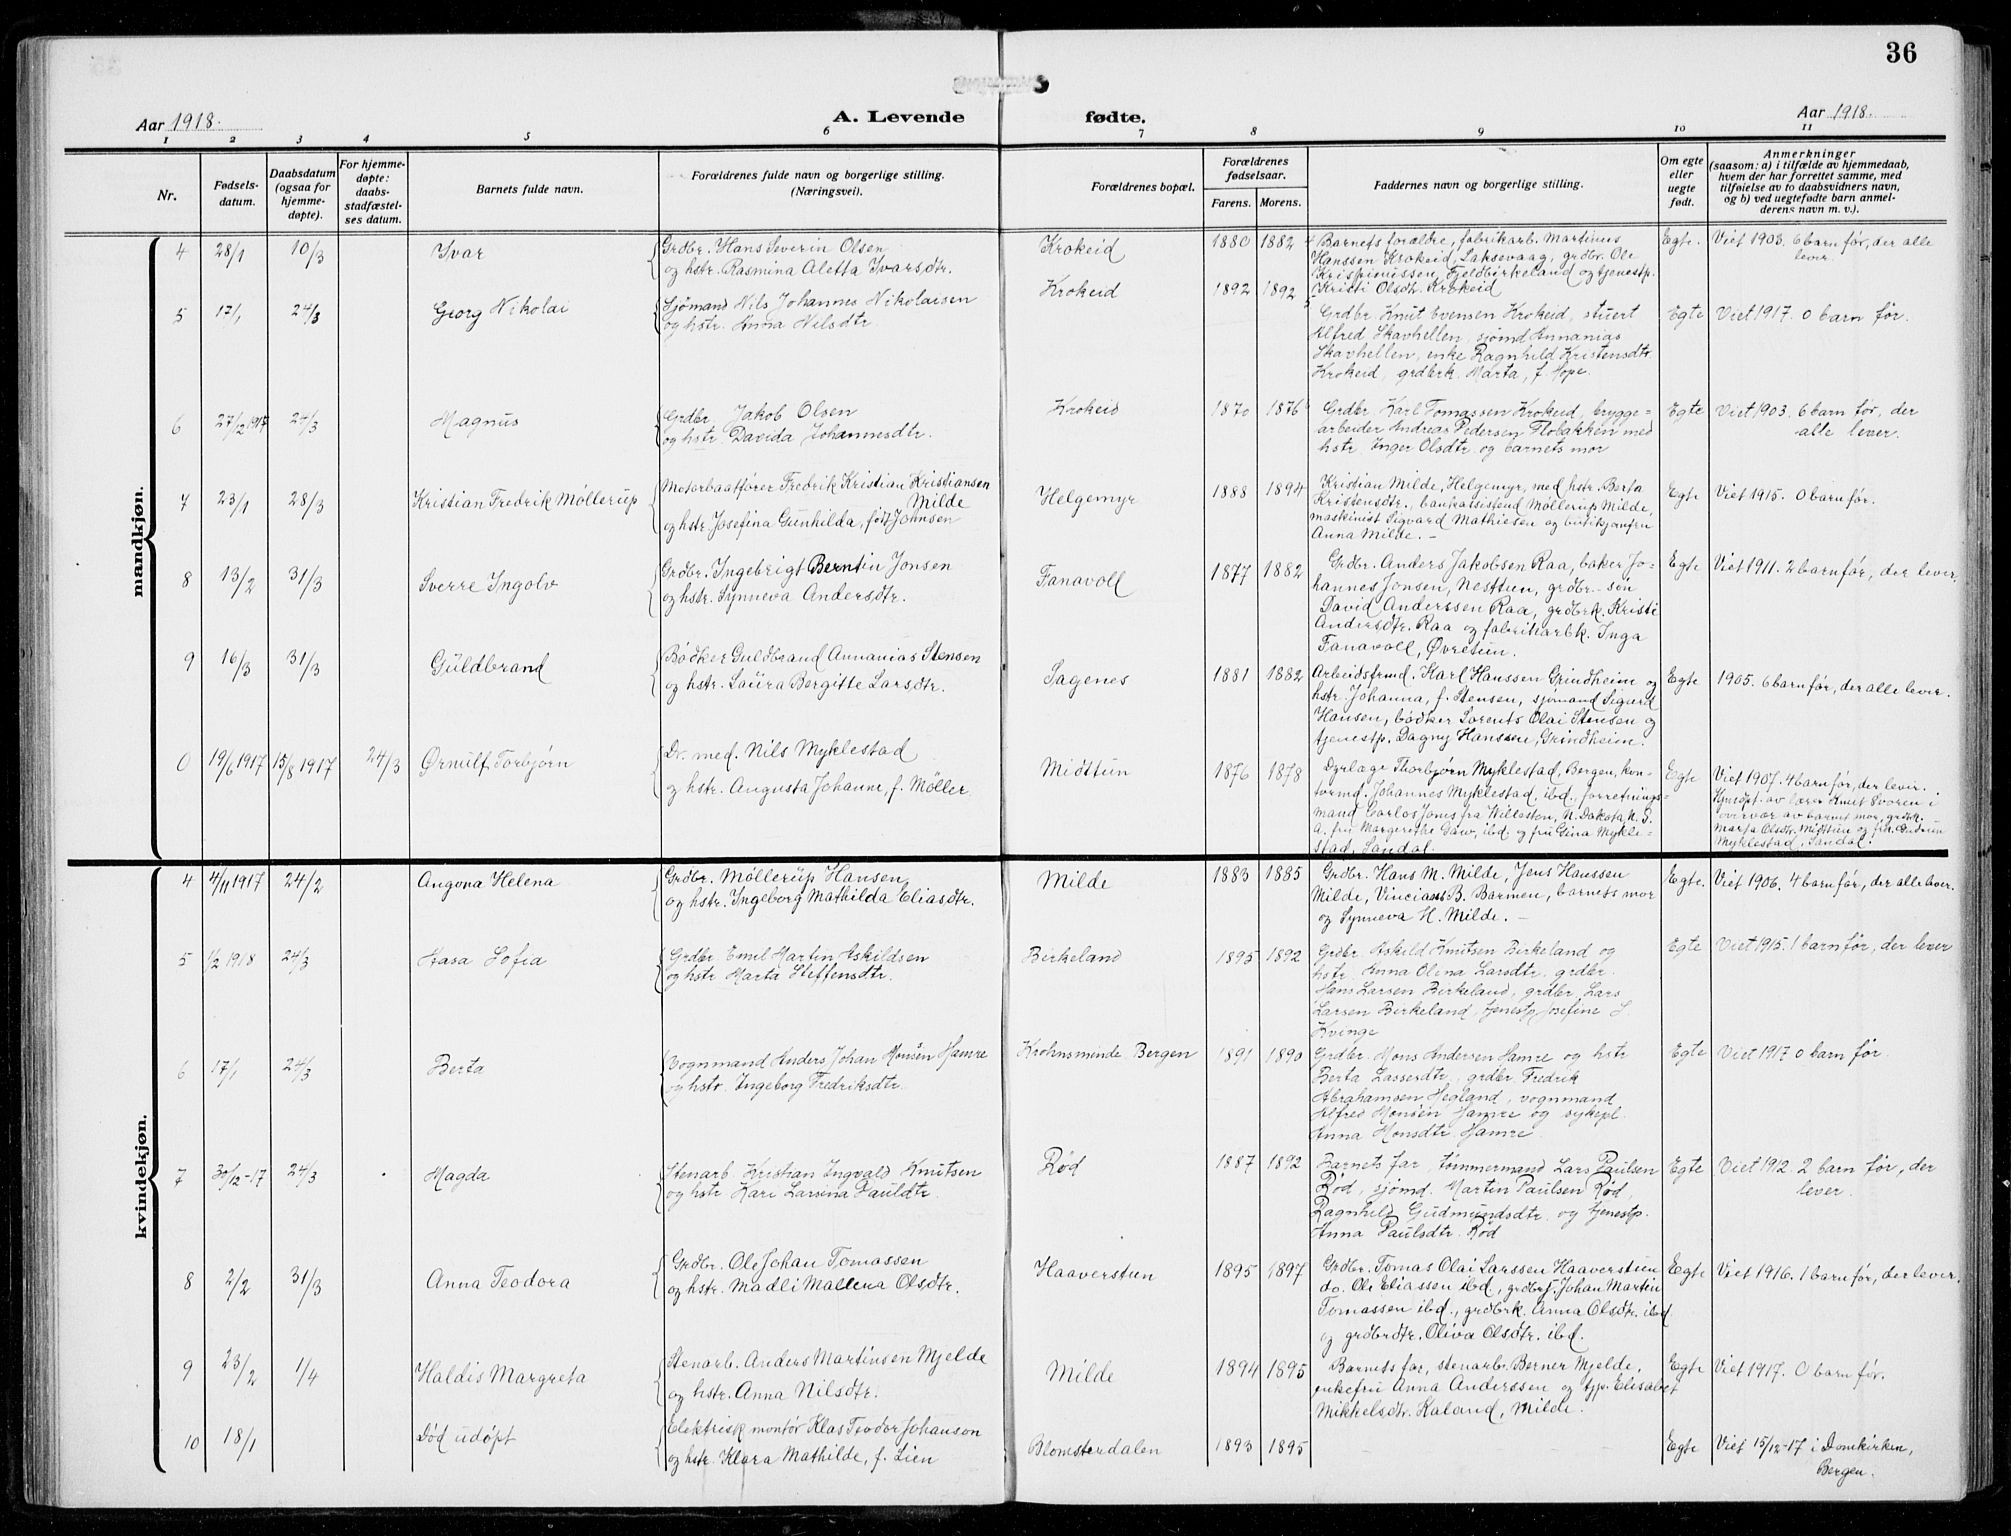 36
Aar 1918.
A. Levende fødte.
Aar 1918.
1 2 3 4 5 6 7 8 9 10 11
Nr.
Fødsels-
datum.
Daabsdatum
(ogsaa for
hjemme-
døpte).
For hjemme-
døpte:
daabs-
stadfæstel-
ses datum.
Barnets fulde navn.
Forældrenes fulde navn og borgerlige stilling.
(Næringsvei).
Forældrenes bopæl.
Forældrenes
fødselsaar.
Farens. Morens.
Faddernes navn og borgerlige stilling.
Om egte
eller
uegte
født.
Anmerkninger
(saasom: a) i tilfælde av hjemmedaab,
hvem der har forrettet samme, med
tilføielse av to daabsvidners navn,
og b) ved uegtefødte barn anmel-
derens navn m. v.).
mandkjøn.
4 28/1 10/3 Ivar
Grdbr. Hans Severin Olsen
og hstr. Rasmina Aletta Ivarsdtr.
Krokeid 1880 1882
Barnets forældre, fabrikarb. Martinus
Hanssen Krokeid, Laksevaag, grdbr. Ole
Krispinussen, Fjeldbirkeland og tjenestp.
Kristi Olsdtr. Krokeid
Egte. Viet 1903. 6 barn før, der alle
lever.
5 17/1 24/3 Georg Nikolai
Sjømand Nils Johannes Nikolaisen
og hstr. Anna Nilsdtr.
Krokeid 1892 1892
Grdbr. Knut Evensen Krokeid, stuert
Alfred Skavhellen, sjømd Annanias
Skavhellen, enke Ragnhild Kristensdtr.
Krokeid, grdbrk. Marta, f. Hope.
Egte Viet 1917. 0 barn før.
6 27/2 1917 24/3 Magnus
Grdbr. Jakob Olsen
og hstr. Davida Johannesdtr.
Krokeid 1870 1876
Grdbr. Karl Tomassen Krokeid, brygge=
arbeider Andreas Pedersen Flobakken med
hstr. Inger Olsdtr. og barnets mor
Egte Viet 1903. 6 barn før, der
alle lever.
7 23/1 28/3 Kristian Fredrik Møllerup
Motorbaatfører Fredrik Kristian Kristiansen
Milde
og hstr. Josefina Gunhilda, født Johnsen
Helgemyr 1888 1894
Kristian Milde, Helgemyr, med hstr. Berta
Kristensdtr., bankassistend Møllerup Milde,
maskinist Sigvard Mathiesen og butikjomfru
Anna Milde. -
Egte Viet 1915. 0 barn før.
8 13/2 31/3 Sverre Ingolv
Grdbr. Ingebrigt Berntin Jonsen
og hstr. Synneva Andersdtr.
Fanavoll 1877 1882
Grdbr. Anders Jakobsen Raa, baker Jo-
hannes Jonsen, Nesttun, grdbr.-søn
David Anderssen Raa, grdbrk. Kristi
Andersdtr. Raa og fabrikarbk. Inga
Fanavoll, Øvretun.
Egte Viet 1911. 2 barn før, der lever.
9 16/3 31/3 Guldbrand
Bødker Guldbrand Annanias Stensen
og hstr. Laura Bergitte Larsdtr.
Sagenes 1881 1882
Arbeidsfrmd. Karl Hanssen Grindheim og
hstr. Johanna, f. Stensen, sjømand Sigurd
Hansen, bødker Lorents Olai Stensen og
tjenestp. Dagny Hanssen, Grindheim.
Egte 1905. 6 barn før, der alle lever.
0 19/6 1917 15/8 1917 24/3 Ørnulf Torbjørn
Dr. med. Nils Myklestad
og hstr. Augusta Johanne, f. Møller.
Midttun 1876 1878
Dyrlæge Thorbjørn Myklestad, Bergen, kon-
tormd. Johannes Myklestad, ibd., forretnings-
mand Carlos Jones fra Williston, N. Dakota N. S.
A. fru Margerethe Gaw, ibd. og fru Gina Mykle-
stad, Sandal.
Egte Viet 1907. 4 barn før, der lever.
Hjmdøpt. av lærer Knut Svoren i
overvær av barnets mor, grdbk.
Marta Olsdtr. Midttun og frk. Gudrun
Myklestad, Sandal.
kvindekjøn.
4 4/11 1917 24/2 Angona Helena
Grdbr. Møllerup Hansen
og hstr. Ingeborg Mathilda Eliasdtr.
Milde 1883 1885
Grdbr. Hans M. Milde, Jens Hanssen
Milde, Vincians B. Barmen, barnets mor
og Synneva H. Milde. -
Egte. Viet 1906. 4 barn før, der alle lever.
5 1/2 1918 24/3 Aasa Sofia
Grdbr Emil Martin Askildsen
og hstr Marta Steffensdtr.
Birkeland 1895 1892
Grdbr. Askild Knutsen Birkeland og
hstr. Anna Olena Larsdtr. grdbr.
Hans Larsen Birkeland, grdbr. Lars
Larsen Birkeland, tjenestp Josefine S.
Kvinge
Egte Viet 1915. 1 barn før, der lever
6 17/1 24/3 Berta
Vognmand Anders Johan Monsen Hamre
og hstr. Ingeborg Fredriksdtr.
Krohnsminde Bergen 1891 1890
Grdbr. Mons Andersen Hamre og hstr
Berta Lassesdtr, grdbr. Fredrik
Abrahamsen Hegland, vognmand
Alfred Monsen Hamre og sykepl.
Anna Monsdtr. Hamre.
Egte Viet 1917 0 barn før.
7 30/12-17 24/3 Magda
Stenarb Kristian Ingvald Knutsen
og hstr. Kari Larsina Pauldtr.
Rød 1887 1892
Barnets far, tømmermand Lars Paulsen
Rød, sjømd. Martin Paulsen Rød,
Ragnhild Gudmundsdtr. og tjenestp.
Anna Paulsdtr. Rød
Egte Viet 1912. 2 barn før, der
lever.
8 2/2 31/3 Anna Teodora
Grdbr. Ole Johan Tomassen
og hstr. Madli Mallena Olsdtr.
Haaverstun 1895 1897
Grdbr. Tomas Olai Larssen Haaverstun
do. Ole Eliassen ibd., grdbrs. Johan Martin
Tomassen ibd., grdbrk. Anna Olsdtr. ibd
og grdbrdtr. Oliva Olsdtr. ibd.
Egte Viet 1916. 1 barn før, der lever.
9 23/2 1/4 Haldis Margreta
Stenarb. Anders Martinsen Mjelde
og hstr. Anna Nilsdtr.
Milde 1894 1895
Barnets far, stenarb. Berner Mjelde,
enkefru Anna Anderssen og tjp. Elisabet
Mikkelsdtr. Kaland, Milde.
Egte Viet 1917. 0 barn før.
10 18/1 Død udøpt
Elektrisk montør Klas Teodor Johanson
og hstr. Klara Mathilde, f. Lien
Blomsterdalen 1893 1895
Egte Viet 15/12-17 i Domkirken,
Bergen.